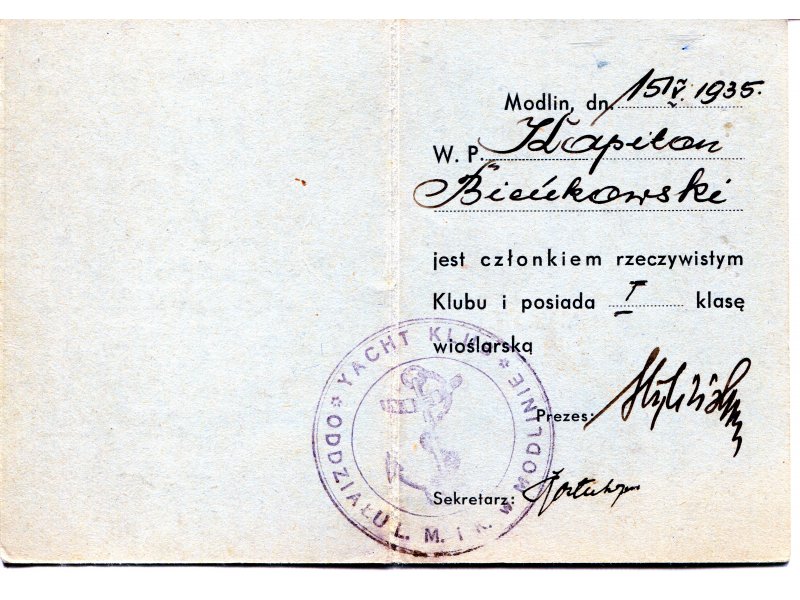 Modlin, dn. 15 IV. 1935.
W. P. Kapitan
Bieńkowski
jest członkiem rzeczywistym
Klubu i posiada I klasę
wioślarską
Prezes:
Sekretarz:
* YACHT KLUB * ODDZIAŁU L. M. i K. w MODLINIE